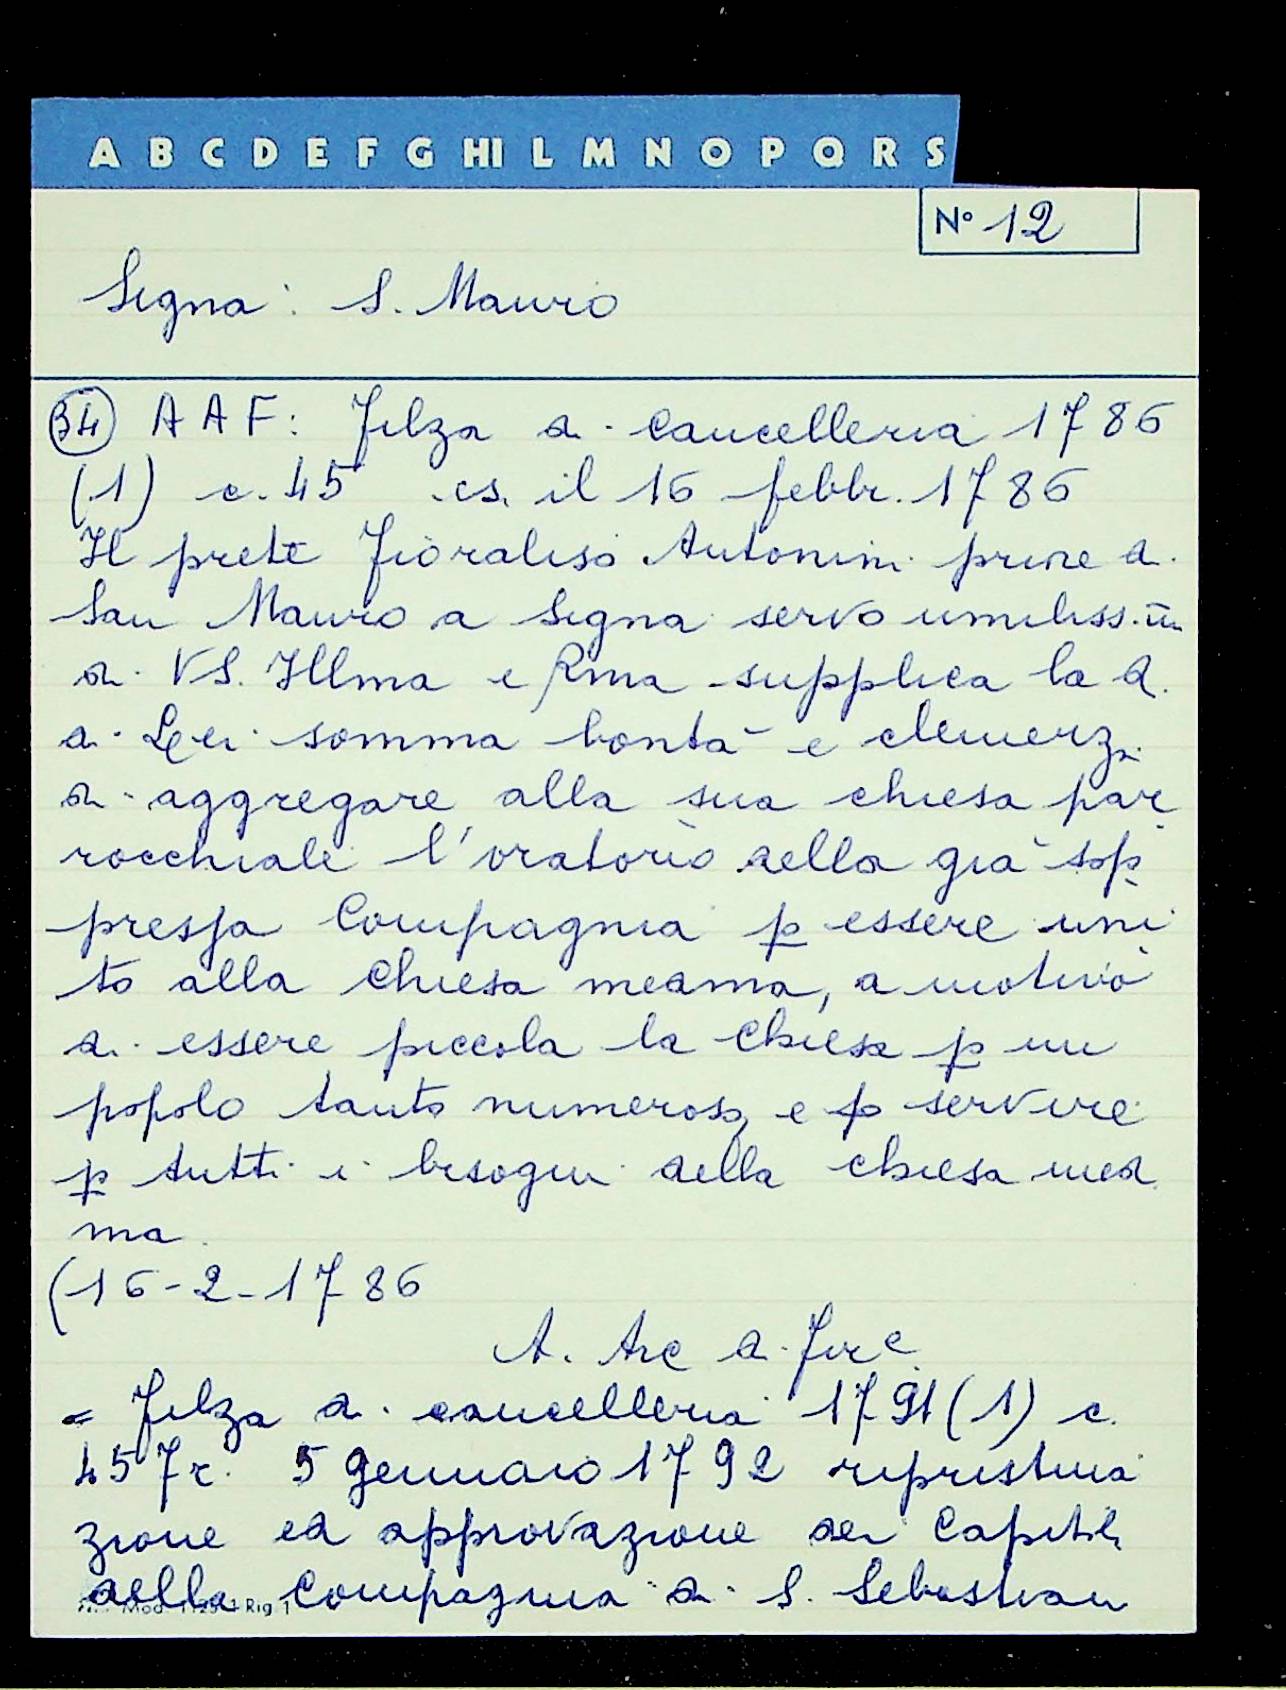 A B C D E F G HI L M N O P Q R S
N° 12
Signa: S. Mauro
34 AAF: Filza di cancelleria 1786
(1) c. 45 cs. il 16 febbr. 1786
Il prete Fioraliso Antonini priore di
San Mauro a Signa servo umiliss.
di VS. Illma e Rma supplica la di
di Lei somma bontà e clemenza
di aggregare alla sua chiesa par
rocchiale l'oratorio della già sop
pressa Compagnia p essere uni
to alla chiesa medma, a motivo
di essere piccola la chiesa p un
popolo tanto numeroso, e p servire
p tutti i bisogni della chiesa med
ma.
(16-2-1786
A. Arc di Fire
= Filza di cancelleria 1791 (1) c.
457r. 5 Gennaio 1792 ripristina
zione ed approvazione dei Capitoli
della Compagnia di S. Sebastian
Rig. 1